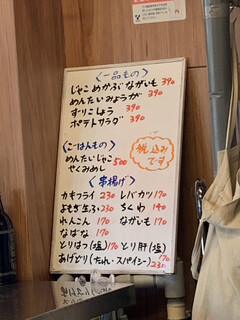 <一品もの>
じゃこめかぶながいも 390
めんたいみょうが 390
すりこしょう 390
ポテトサラダ 390
<ごはんもの>
めんたいじゃこ 500
やくみめし
税込み
です
<串揚げ>
カキフライ 230 レバカツ 170
よもぎ生ふ 230 ちくわ 140
れんこん 170 ながいも 170
なばな 170
とりはつ(塩) 170 とり肝(塩) 170
あげどり(たれ・スパイシー) 230